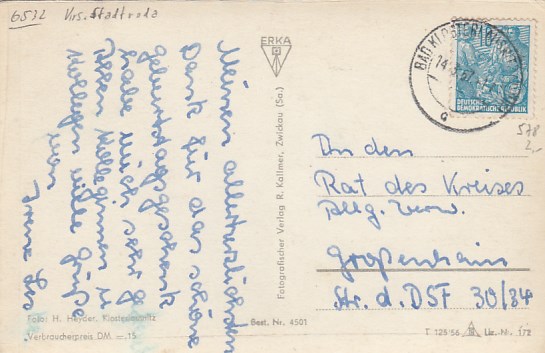 6532 Krs. Stadtroda
Meinen allerherzlichsten
Dank für das schöne
Geburtstagsgeschenk
habe mich sehr g
Allen Kolleginnen u
Kollegen viele Grüße
von
Irene
ERKA
Fotografischer Verlag R. Kallmer, Zwickau (Sa.)
BAD KLOSTERLAUSNITZ
DEUTSCHE
DEMOKRATISCHE REPUBLIK
578
2,-
An den
Rat des Kreises
Allg. Verw.
Großenhain
Str. d. DSF 30/34
Foto: H. Heyder, Klosterlausnitz
Verbraucherpreis DM —.15
Best. Nr. 4501
T 125/56 Liz.-Nr. 172